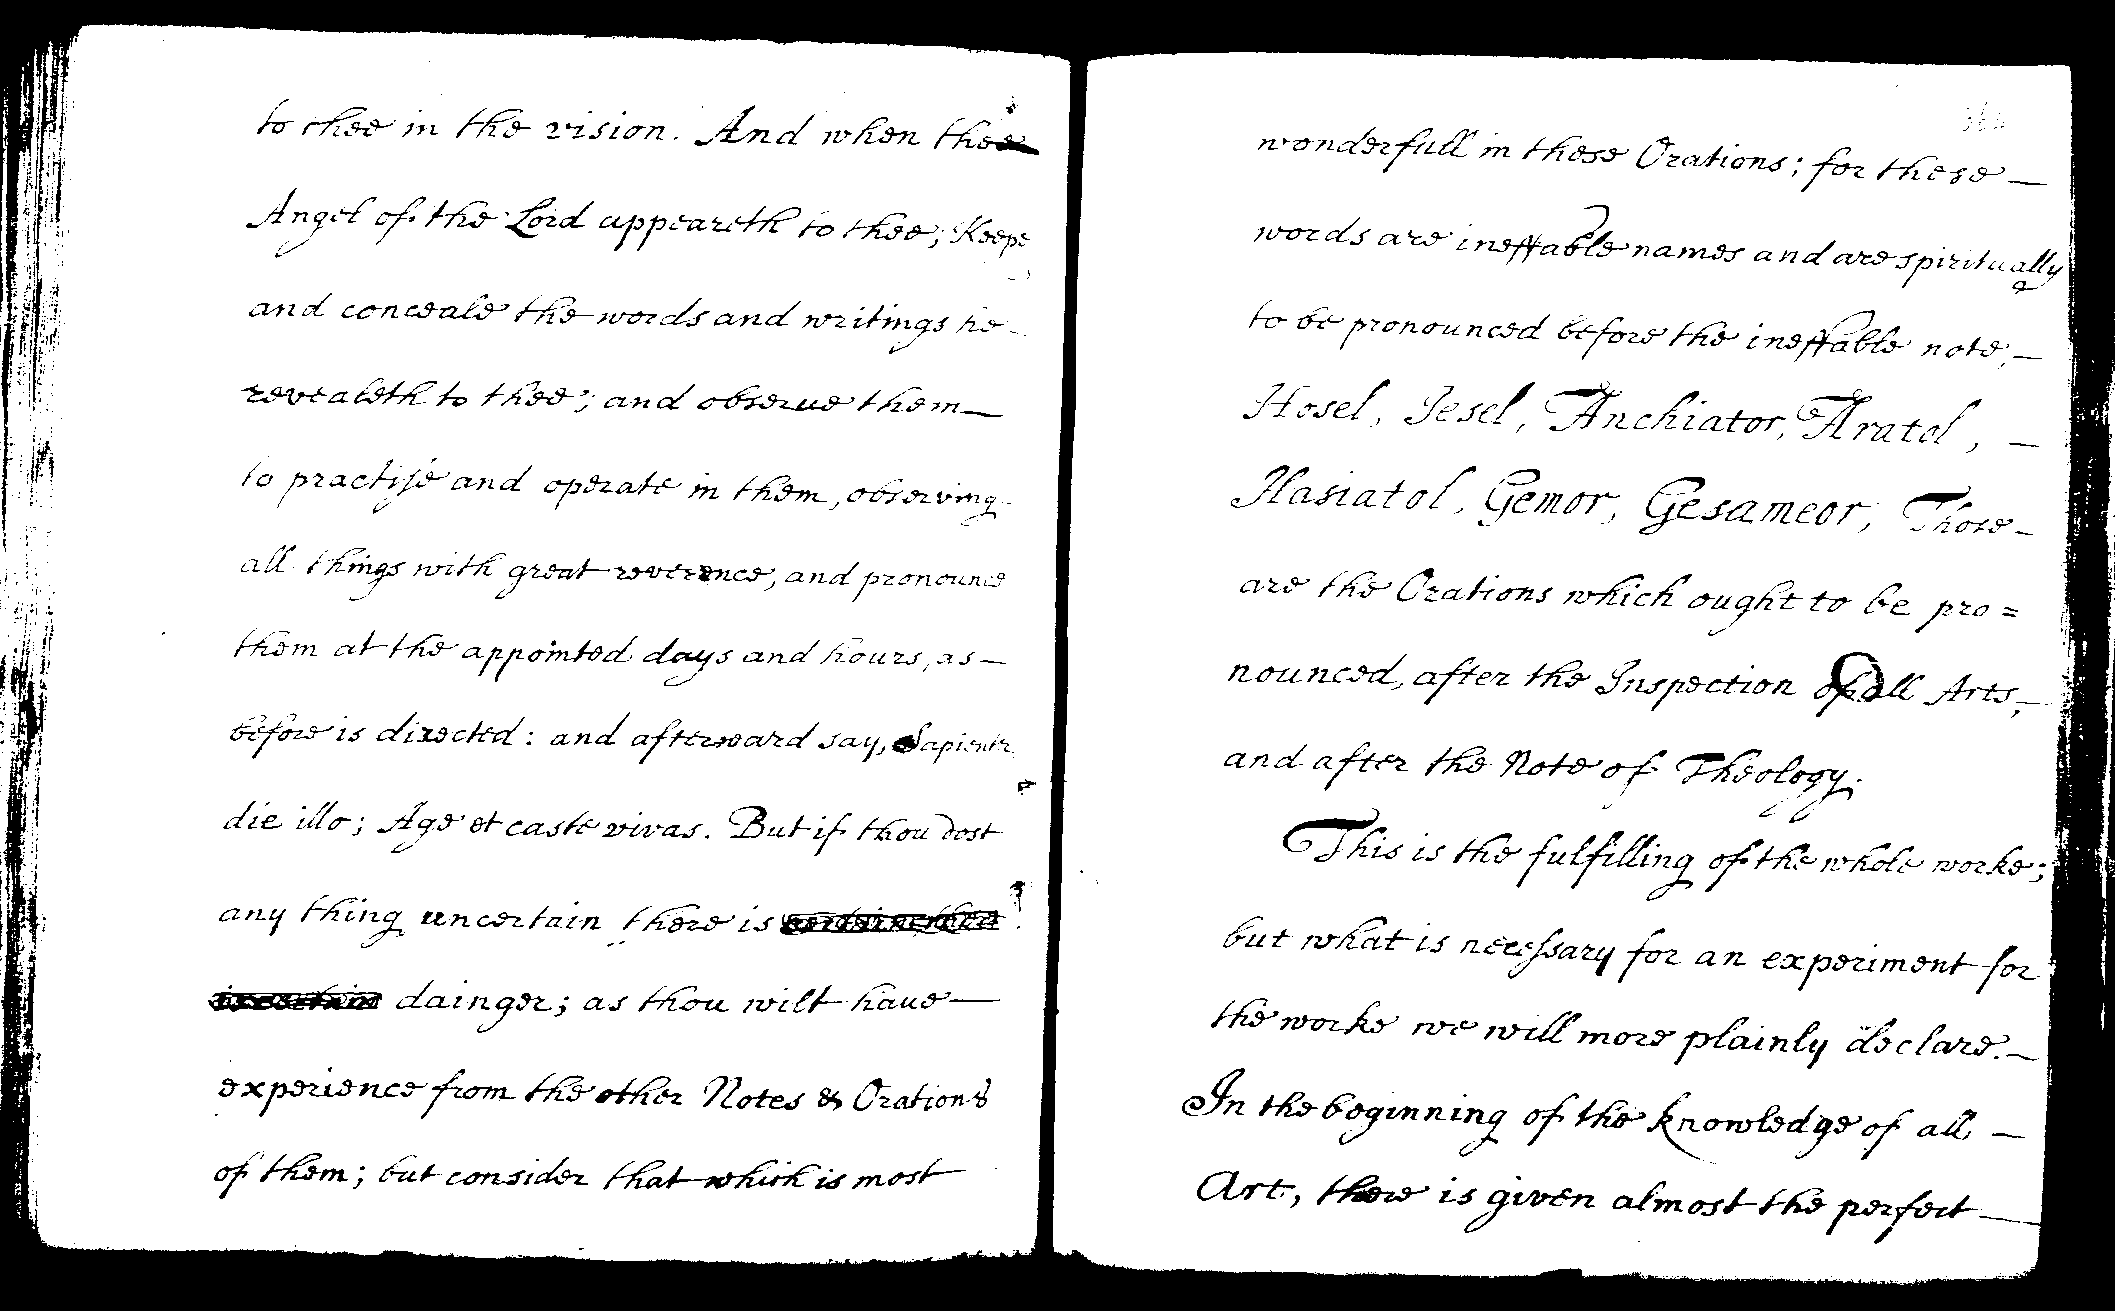 to thee in the vision. And when the
Angel of the Lord appeareth to thee; Keepe
and conceale the words and writings he
revealeth to thee; and observe them
to practise and operate in them, observing
all things with great reverence, and pronounce
them at the appointed days and hours, as
before is directed: and afterward say, Sapienter
die illo; Age et caste vivas. But if thou dost
any thing uncertain there is
dainger; as thou wilt haue
experience from the other Notes & Orations
of them; but consider that which is most
wonderfull in these Orations; for these
words are ineffable names and are spiritually
to be pronounced before the ineffable note,
Hosel, Jesel, Anchiator, Aratol,
Hasiatol, Gemor, Gesameor, Those
are the Orations which ought to be pro=
nounced, after the Inspection of all Arts,
and after the Note of Theology.
This is the fulfilling of the whole worke;
but what is necessary for an experiment for
the worke we will more plainly declare.
In the beginning of the knowledge of all
Art, there is given almost the perfect